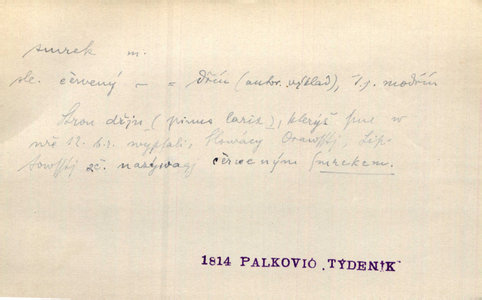 smrek m.
sle. červený – = dřín (autor. výklad), t.j. modřín
Strom dřjn (pinus larix), kterýž sme w
nrě 12. b.r. wypsali, Slowácy Orawsstj, Lip-
towsstj &č. nazýwagj čerweným smrekem.
1814 PALKOVIČ „TÝDENÍK"